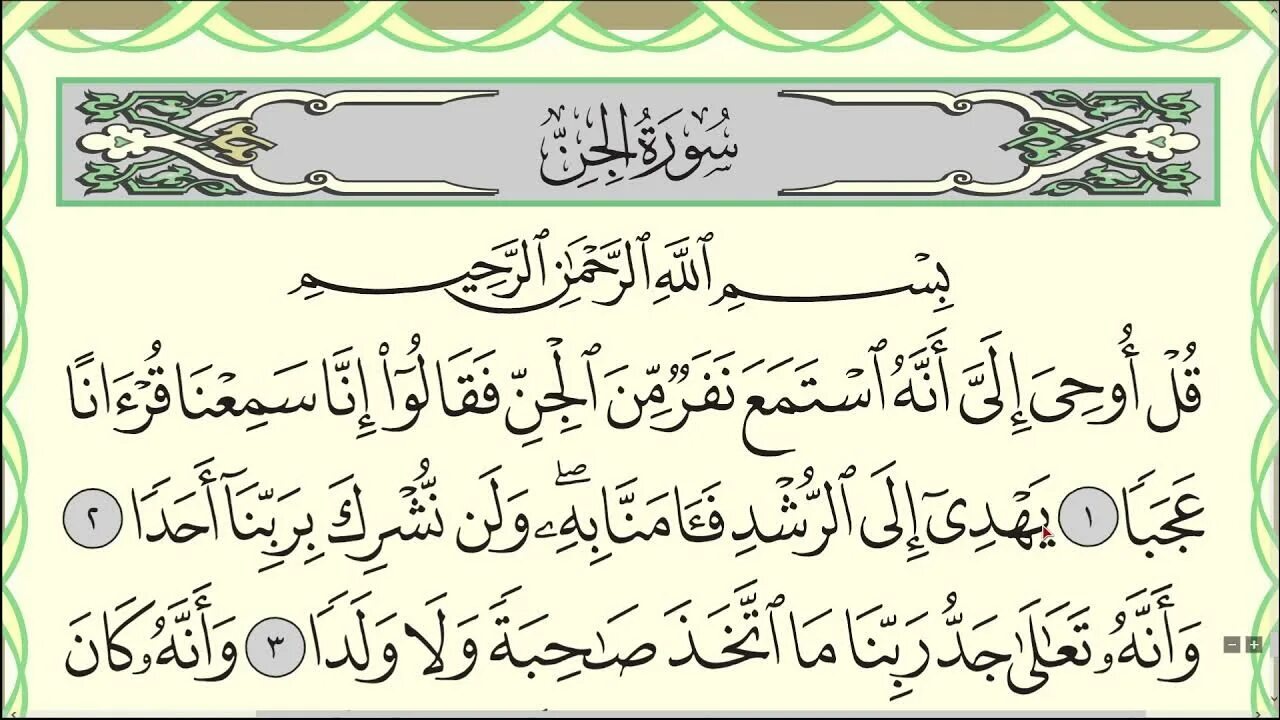 سُورَةُ الجِنِّ
بِسْمِ ٱللَّهِ ٱلرَّحْمَٰنِ ٱلرَّحِيمِ
قُلْ أُوحِىَ إِلَىَّ أَنَّهُ ٱسْتَمَعَ نَفَرٌ مِّنَ ٱلْجِنِّ فَقَالُوٓا۟ إِنَّا سَمِعْنَا قُرْءَانًا
عَجَبًا ١ يَهْدِىٓ إِلَى ٱلرُّشْدِ فَـَٔامَنَّا بِهِۦ ۖ وَلَن نُّشْرِكَ بِرَبِّنَآ أَحَدًا ٢
وَأَنَّهُۥ تَعَٰلَىٰ جَدُّ رَبِّنَا مَا ٱتَّخَذَ صَٰحِبَةً وَلَا وَلَدًا ٣ وَأَنَّهُۥ كَانَ